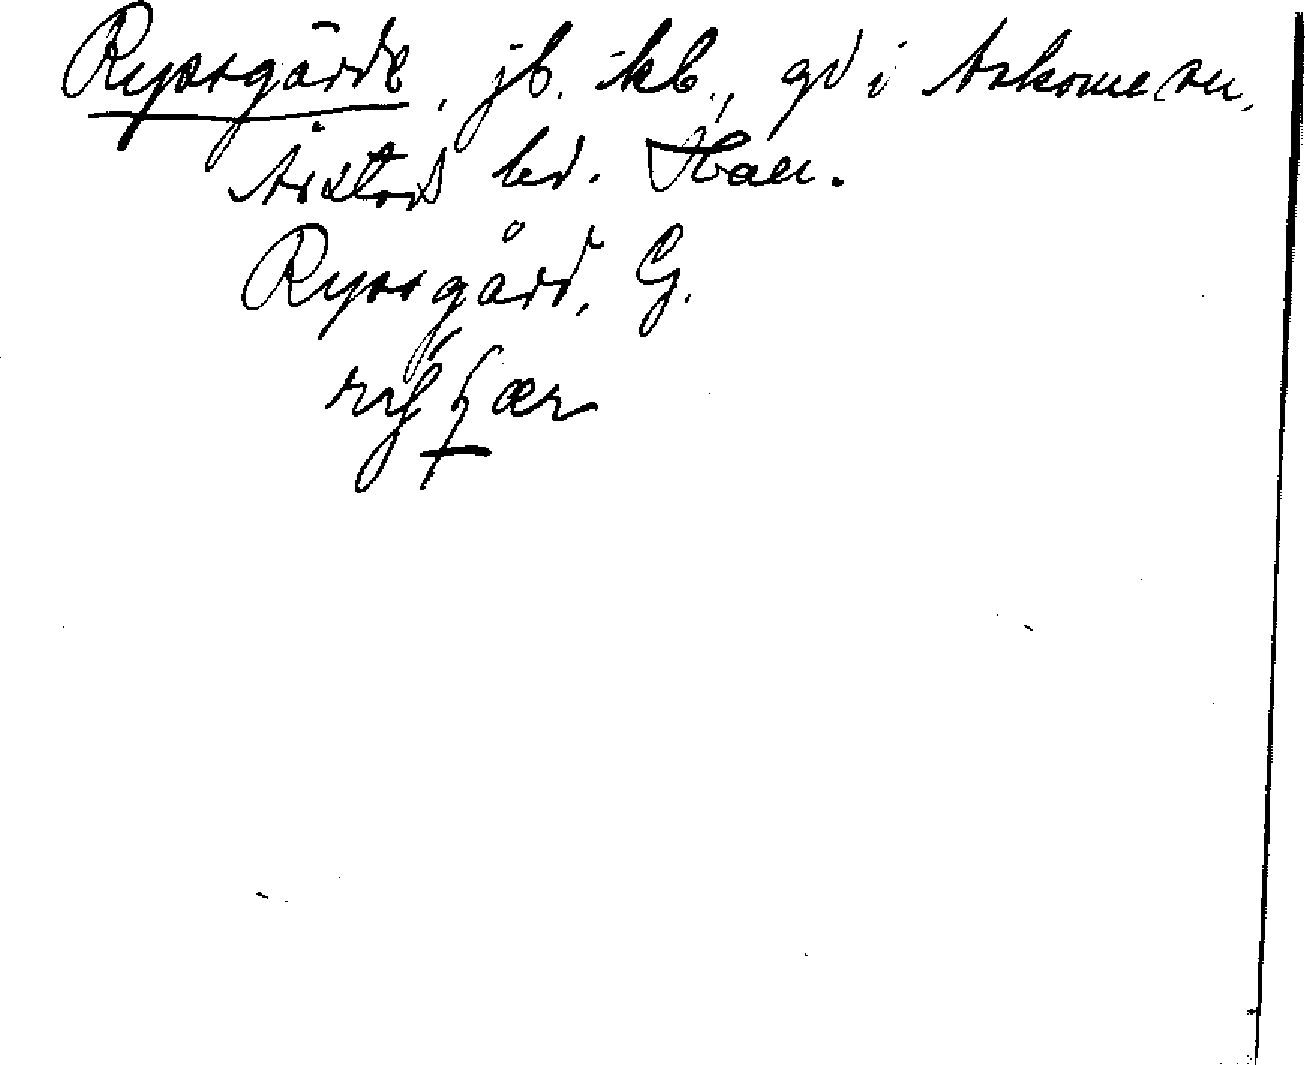 Ryssgärde, jb. ikb., gd i Askome sn,
Årstads hd. Hall.
Ryssgård, G.